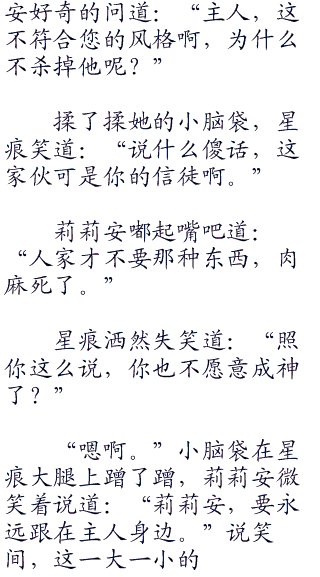 安好奇的问道：“主人，这
不符合您的风格啊，为什么
不杀掉他呢？”
揉了揉她的小脑袋，星
痕笑道：“说什么傻话，这
家伙可是你的信徒啊。”
莉莉安嘟起嘴吧道：
“人家才不要那种东西，肉
麻死了。”
星痕洒然失笑道：“照
你这么说，你也不愿意成神
了？”
“嗯啊。”小脑袋在星
痕大腿上蹭了蹭，莉莉安微
笑着说道：“莉莉安，要永
远跟在主人身边。”说笑
间，这一大一小的